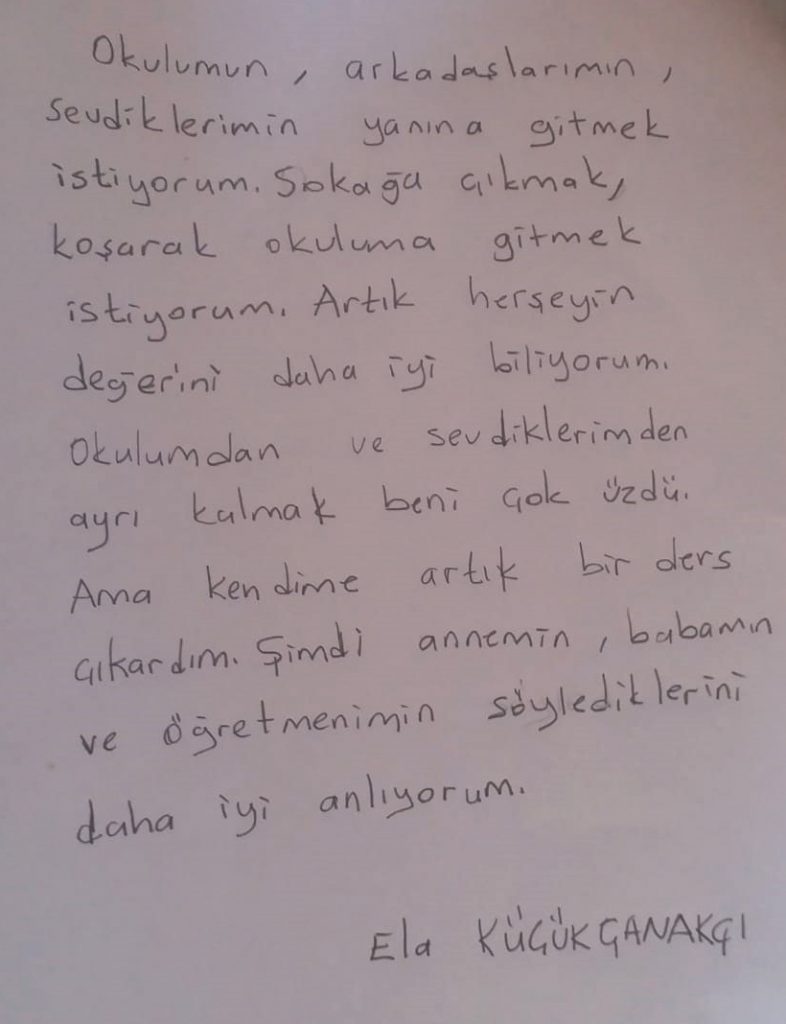 Okulumun, arkadaşlarımın,
sevdiklerimin yanına gitmek
istiyorum. Sokağa çıkmak,
koşarak okuluma gitmek
istiyorum. Artık herşeyin
değerini daha iyi biliyorum.
Okulumdan ve sevdiklerimden
ayrı kalmak beni çok üzdü.
Ama kendime artık bir ders
çıkardım. Şimdi annemin, babamın
ve öğretmenimin söylediklerini
daha iyi anlıyorum.
Ela KÜÇÜKÇANAKÇI